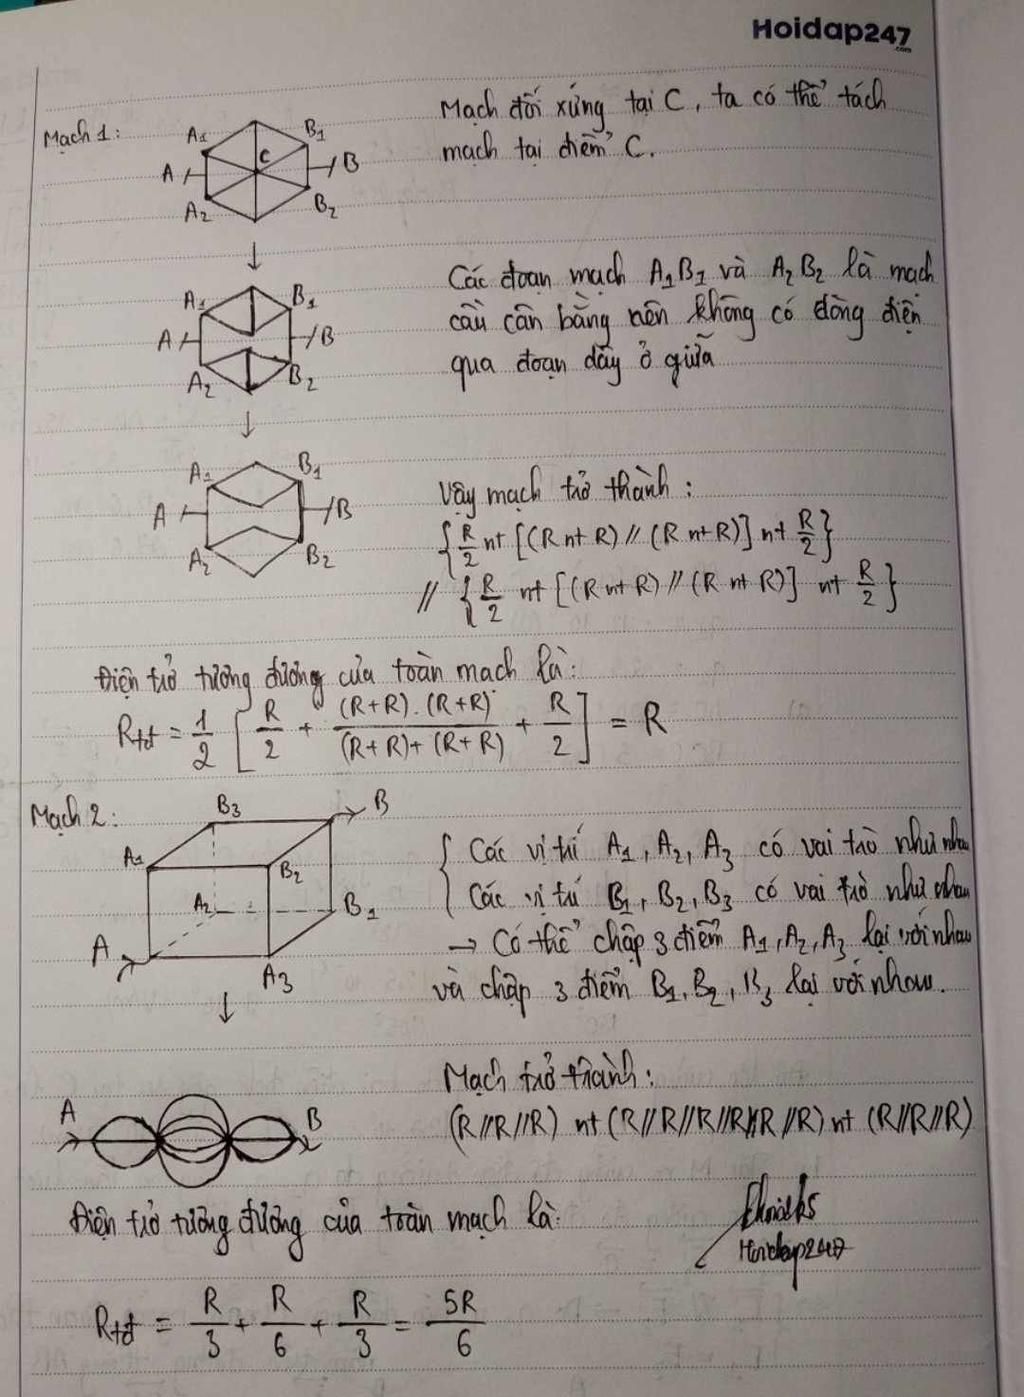 Hoidap247
.com
Mạch 1:
A1
B1
C
A
B
A2
B2
Mạch đối xứng tại C, ta có thể tách
mạch tại điểm C.
A1
B1
A
B
A2
B2
Các đoạn mạch A1B1 và A2B2 là mạch
cầu cân bằng nên không có dòng điện
qua đoạn dây ở giữa
A1
B1
A
B
A2
B2
Vậy mạch trở thành:
{R/2 nt [(R nt R) // (R nt R)] nt R/2}
// {R/2 nt [(R nt R) // (R nt R)] nt R/2}
Điện trở tương đương của toàn mạch là:
Rtđ = 1/2 [R/2 + (R+R).(R+R)/(R+R)+(R+R) + R/2] = R
Mạch 2:
B3
B
A1
B2
A2
B1
A
A3
{ Các vị trí A1, A2, A3 có vai trò như nhau
Các vị trí B1, B2, B3 có vai trò như nhau
→ Có thể chập 3 điểm A1, A2, A3 lại với nhau
và chập 3 điểm B1, B2, B3 lại với nhau.
A
B
Mạch trở thành:
(R//R//R) nt (R//R//R//R//R//R) nt (R//R//R)
Điện trở tương đương của toàn mạch là:
Hoidap247
Rtđ = R/3 + R/6 + R/3 = 5R/6